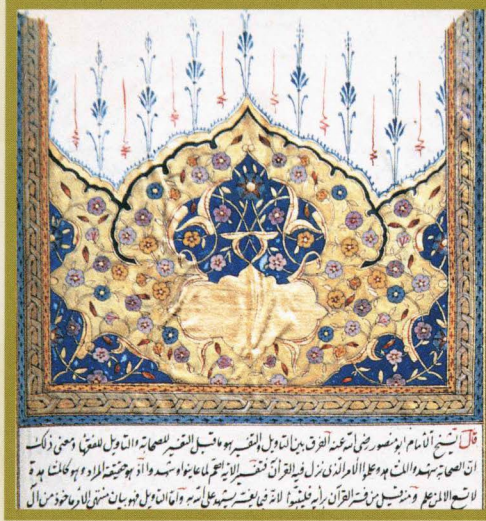 قال الشيخ الامام ابو منصور رضى الله عنه الفرق بين التاويل والتفسير هو ما قيل التفسير للصحابة والتاويل للفقهاء ومعنى ذلك
ان الصحابة شهدوا المشاهد وعلموا الامر الذى نزل فيه القرآن فتفسير الاية اهم لما عاينوا وشهدوا اذ هو حقيقة المراد وهو كالمشاهدة
لا يسع الا لمن علم ومنه قيل من فسر القرآن برأيه فليتبوأ لانه فيما يفسر يشهد على الله به واما التاويل فهو بيان منتهى الامر ماخوذ من آل